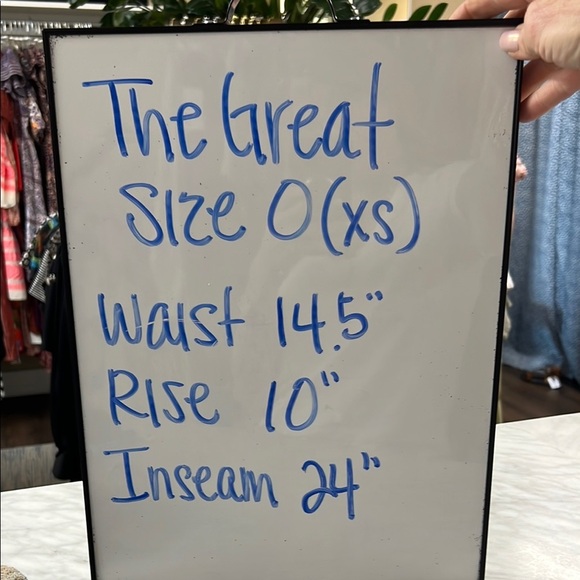 The Great
Size 0 (xs)
Waist 14.5"
Rise 10"
Inseam 24"